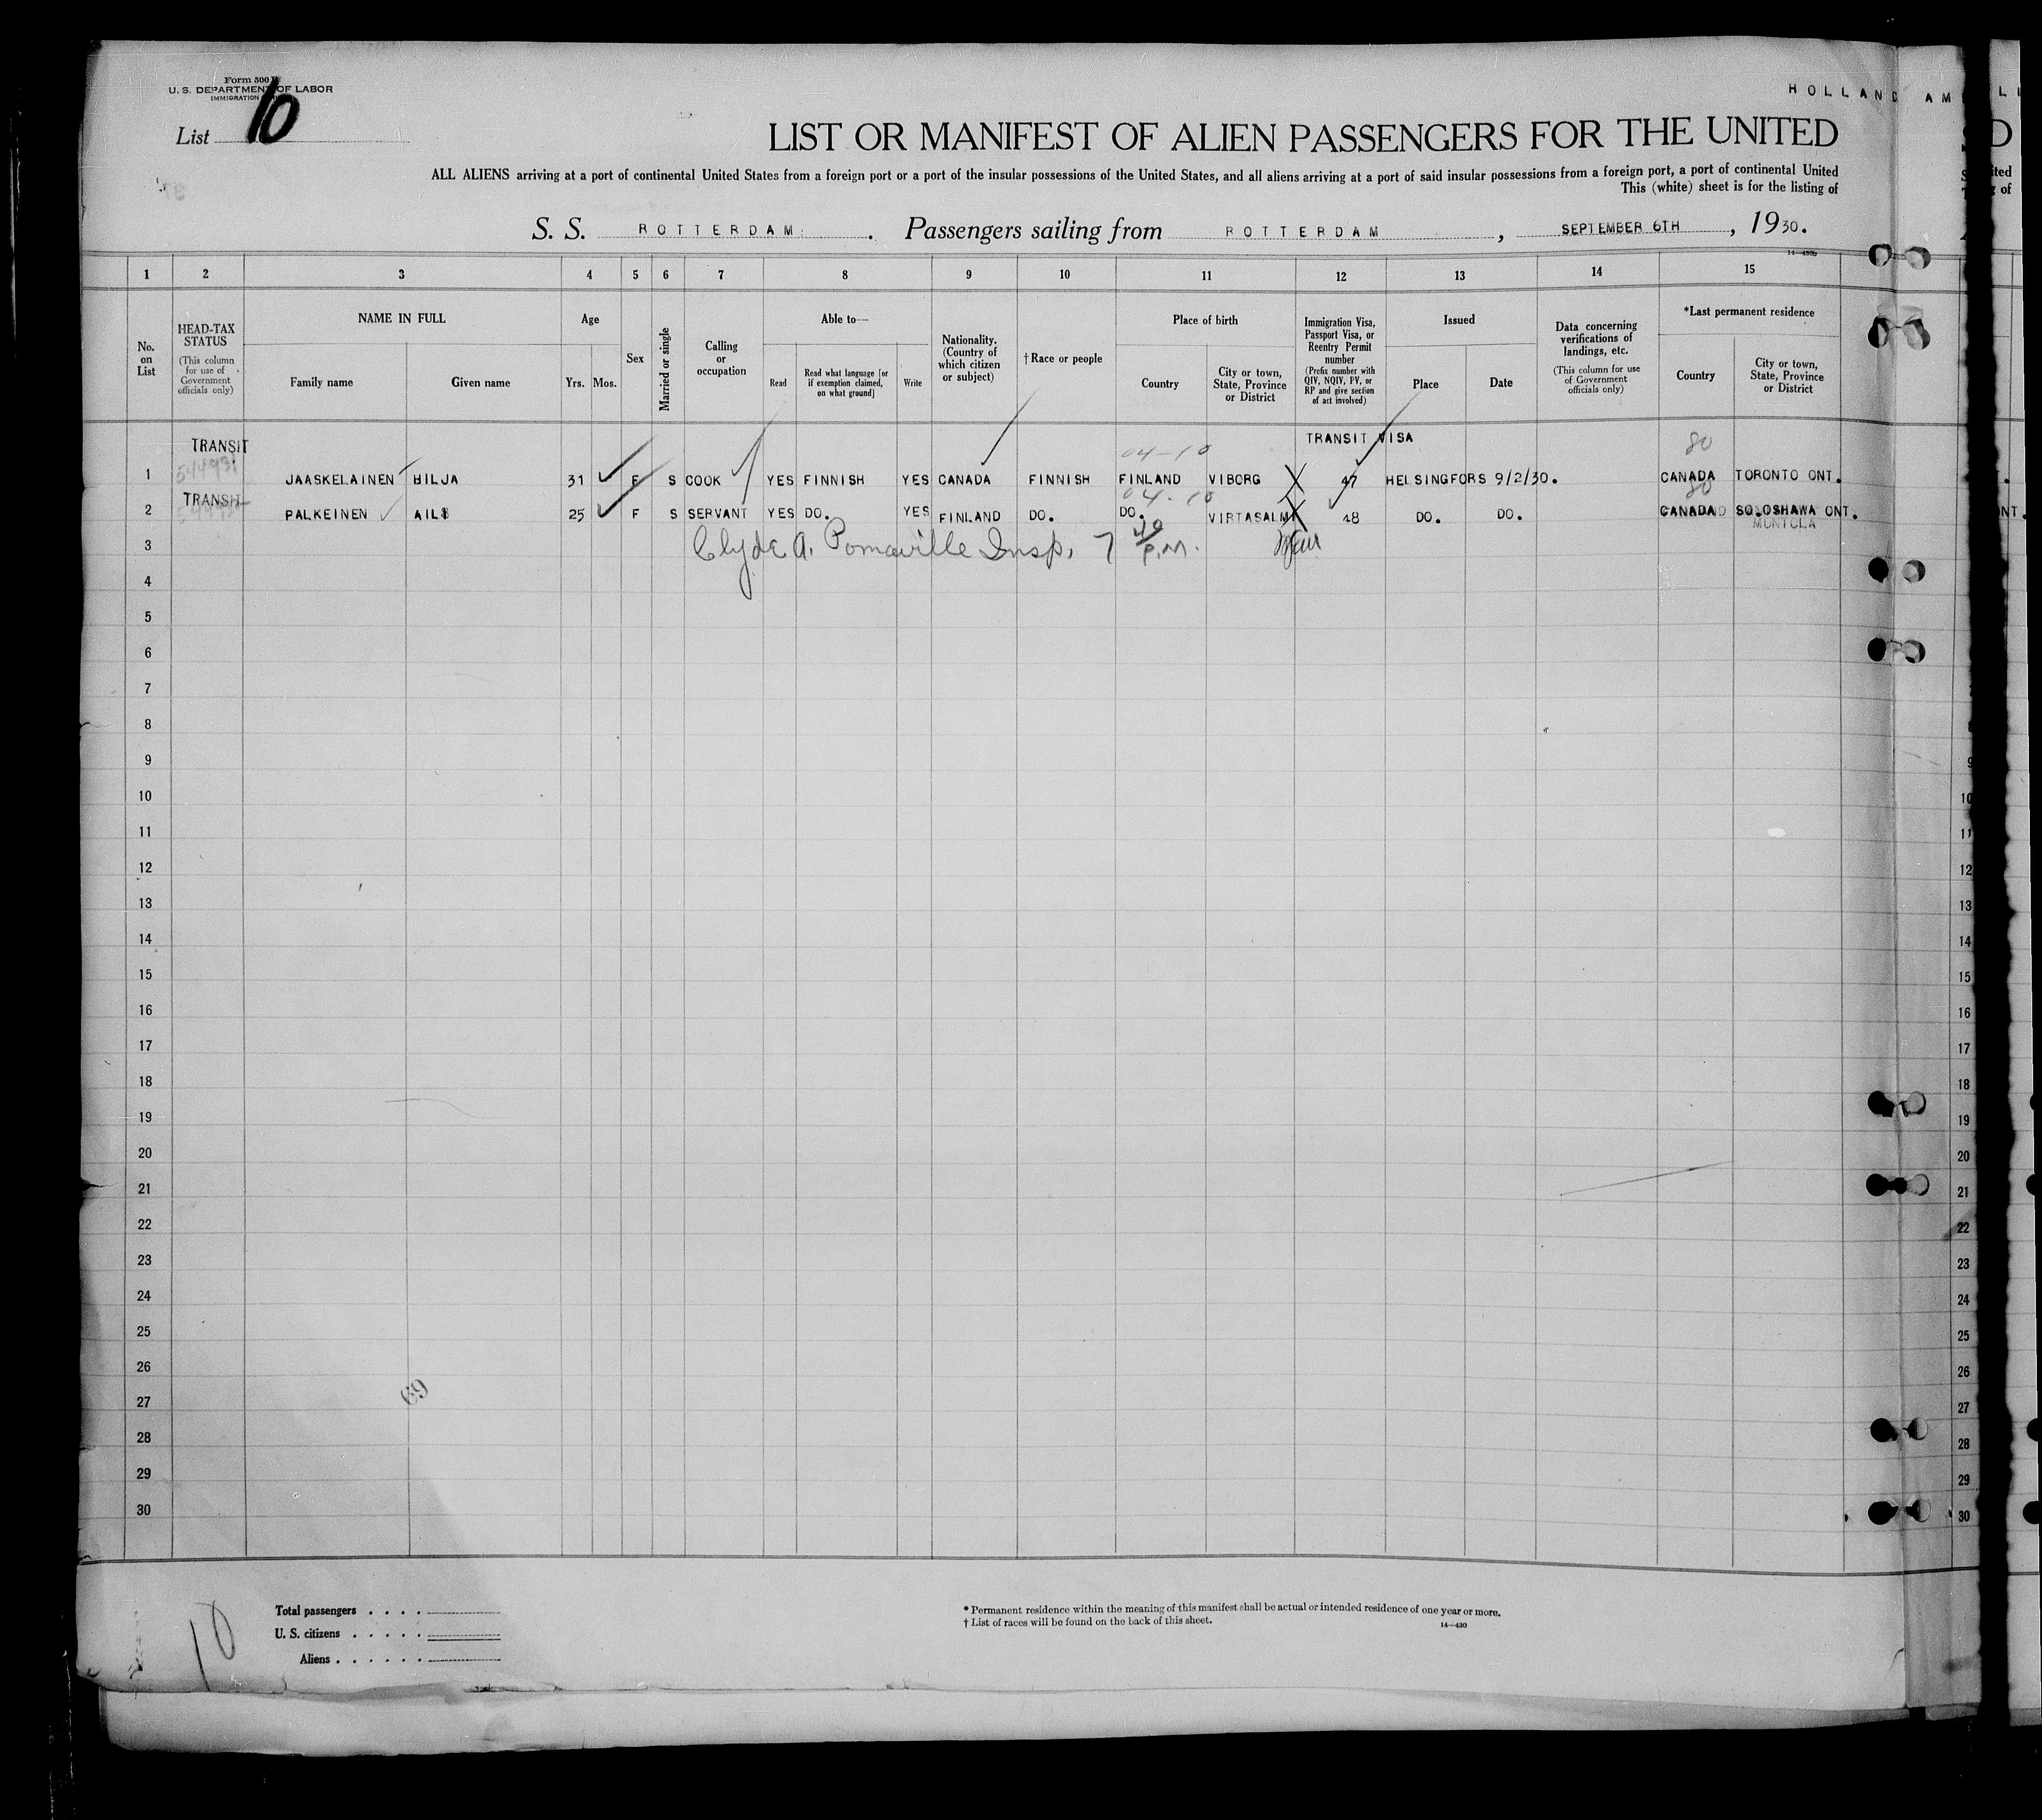 Form 500
U. S. DEPARTMENT OF LABOR
IMMIGRATION
List 10
HOLLAND AM
LIST OR MANIFEST OF ALIEN PASSENGERS FOR THE UNITED
ALL ALIENS arriving at a port of continental United States from a foreign port or a port of the insular possessions of the United States, and all aliens arriving at a port of said insular possessions from a foreign port, a port of continental United
This (white) sheet is for the listing of
S. S. ROTTERDAM. Passengers sailing from ROTTERDAM, SEPTEMBER 6TH, 1930.
14-430b
1 2 3 4 5 6 7 8 9 10 11 12 13 14 15
No. on List
HEAD-TAX STATUS
(This column for use of Government officials only)
NAME IN FULL
Family name Given name
Age
Yrs. Mos.
Sex
Married or single
Calling or occupation
Able to—
Read
Read what language [or if exemption claimed, on what ground]
Write
Nationality. (Country of which citizen or subject)
†Race or people
Place of birth
Country
City or town, State, Province or District
Immigration Visa, Passport Visa, or Reentry Permit number
(Prefix number with QIV, NQIV, PV, or RP and give section of act involved)
Issued
Place Date
Data concerning verifications of landings, etc.
(This column for use of Government officials only)
*Last permanent residence
Country
City or town, State, Province or District
TRANSIT 04-10 TRANSIT VISA 80
1 JAASKELAINEN HILJA 31 F S COOK YES FINNISH YES CANADA FINNISH FINLAND VIBORG 47 HELSINGFORS 9/2/30. CANADA TORONTO ONT.
TRANSIT 04-10 80
2 PALKEINEN 25 F S SERVANT YES DO. YES FINLAND DO. DO. VIRTASALMI 48 DO. DO. CANADA SO.OSHAWA ONT.
MUNTOLA
3 Clyde A. Pomaville Insp. 7 40 P.M.
4
5
6
7
8
9
10
11
12
13
14
15
16
17
18
19
20
21
22
23
24
25
26
27
28
29
30
69
10
Total passengers
U. S. citizens
Aliens
* Permanent residence within the meaning of this manifest shall be actual or intended residence of one year or more.
† List of races will be found on the back of this sheet.
14-430